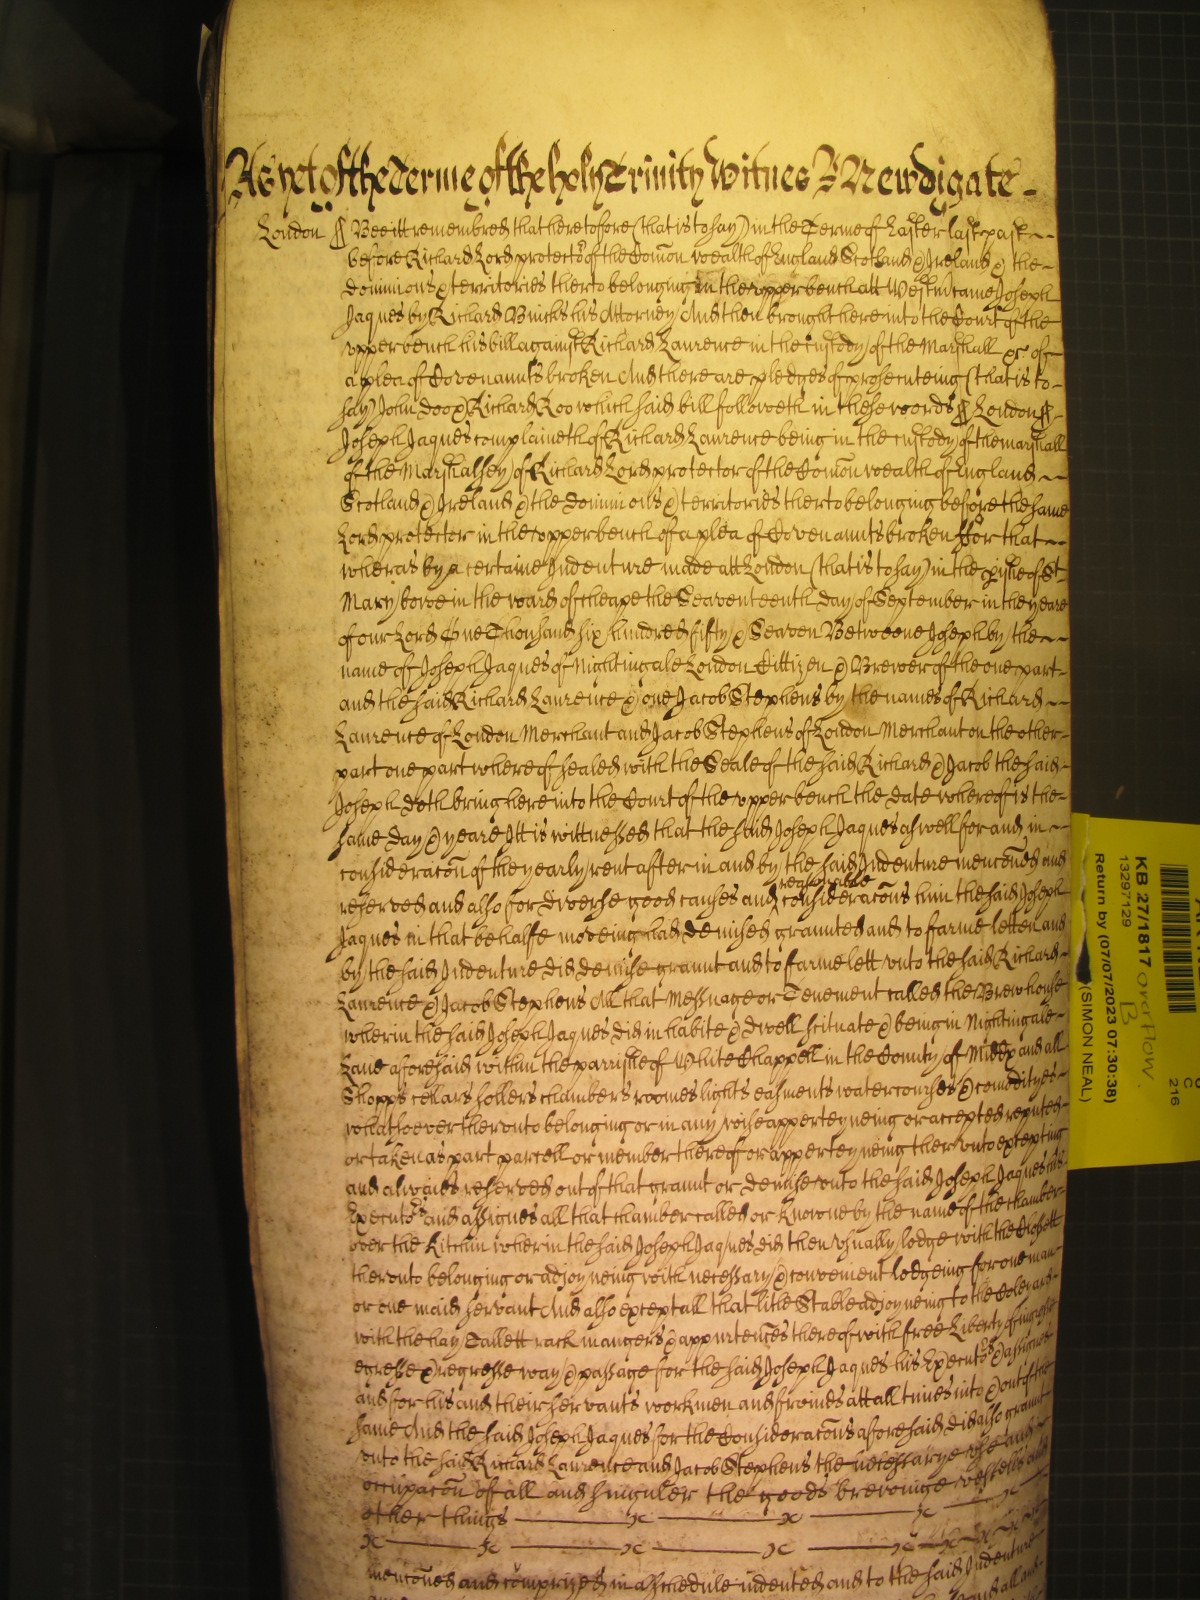 As yet of the Terme of the holy Trinity Witnes R Newdigate
London ¶ Bee itt remembred that heretofore (that is to say) in the Terme of Easter last past
before Richard Lord protector of the Comon wealth of England Scotland & Ireland & the
dominions & territories therto belonging in the upper bench att Westm came Joseph
Jaques by Richard Binchs his Attorney And then brought here into the Court of the
upper bench his bill against Richard Laurence in the custody of the Marshall &c of
a plea of Covenaunts broken And there are pledges of prosecuteing (that is to
say) John Doo & Richard Roo which said bill followeth in these words ¶ London ¶
Joseph Jaques complaineth of Richard Laurence being in the custody of the marshall
of the Marshalsey of Richard Lord protector of the Comon wealth of England
Scotland & Ireland & the dominions & territories therto belonging before the same
Lord protector in the upper bench of a plea of Covenaunts broken ffor that
wheras by a certaine Indenture made att London (that is to say) in the pishe of St
Mary bowe in the ward of cheape the Seaventeenth day of September in the yeare
of our Lord One Thousand six hundred fifty & Seaven Betweene Joseph by the
name of Joseph Jaques of Nightingale London Cittizen & Brewer of the one part
and the said Richard Laurence & one Jacob Stephens by the names of Richard
Laurence of London Merchant and Jacob Stephens of London Merchant on the other
part one part whereof sealed with the Seale of the said Richard & Jacob the said
Joseph doth bring here into the Court of the upper bench the date whereof is the
same day & yeare Itt is wittnessed that the said Joseph Jaques as well for and in
consideracon of the yearly rent after in and by the said Indenture menconed and
reserved and also for diverse good causes and reasonable consideracons him the said Joseph
Jaques in that behalfe moveing had demised graunted and to farme letten and
by the said Indenture did demise graunt and to farme lett unto the said Richard
Laurence & Jacob Stephens All that Messuage or Tenement called the Brewhouse
wherin the said Joseph Jaques did inhabite & dwell scituate & being in Nightingale
Lane aforesaid within the parrishe of White Chappell in the County of Middx and all
Shopps cellars sollers chambers roomes lights easments watercourses & comodityes
whatsoever therunto belonging or in any wise apperteyneing or accepted reputed
or taken as part parcell or member thereof or apperteyneing therunto excepting
and alwaies reserved out of that graunt or demise unto the said Joseph Jaques his
Executors and assignes all that chamber called or knowne by the name of the chamber
over the Kitchin wherin the said Joseph Jaques did then usually lodge with the Clossett
therunto belonging or adjoyneing with necessary & convenient lodgeing for one man
or one maid servant And also except all that litle Stable adjoyneing to the
with the hay Tallett rack mangers & appurtences thereof with free Liberty of ingresse
egresse & regresse way & passage for the said Joseph Jaques his Executors & assignes
and for his and their servants workmen and freinds att all times into & out of the
same And the said Joseph Jaques for the Consideracons aforesaid did also graunt
unto the said Richard Laurence and Jacob Stephens the necessarye use and
occupacon of all and singuler the goods breweinge vessells and
other things
menconed and comprized in a schedule indented and to the said Indenture
KB 27/1817 overflow
B
13297129
Return by (07/07/2023 07:30:38)
(SIMON NEAL)
216